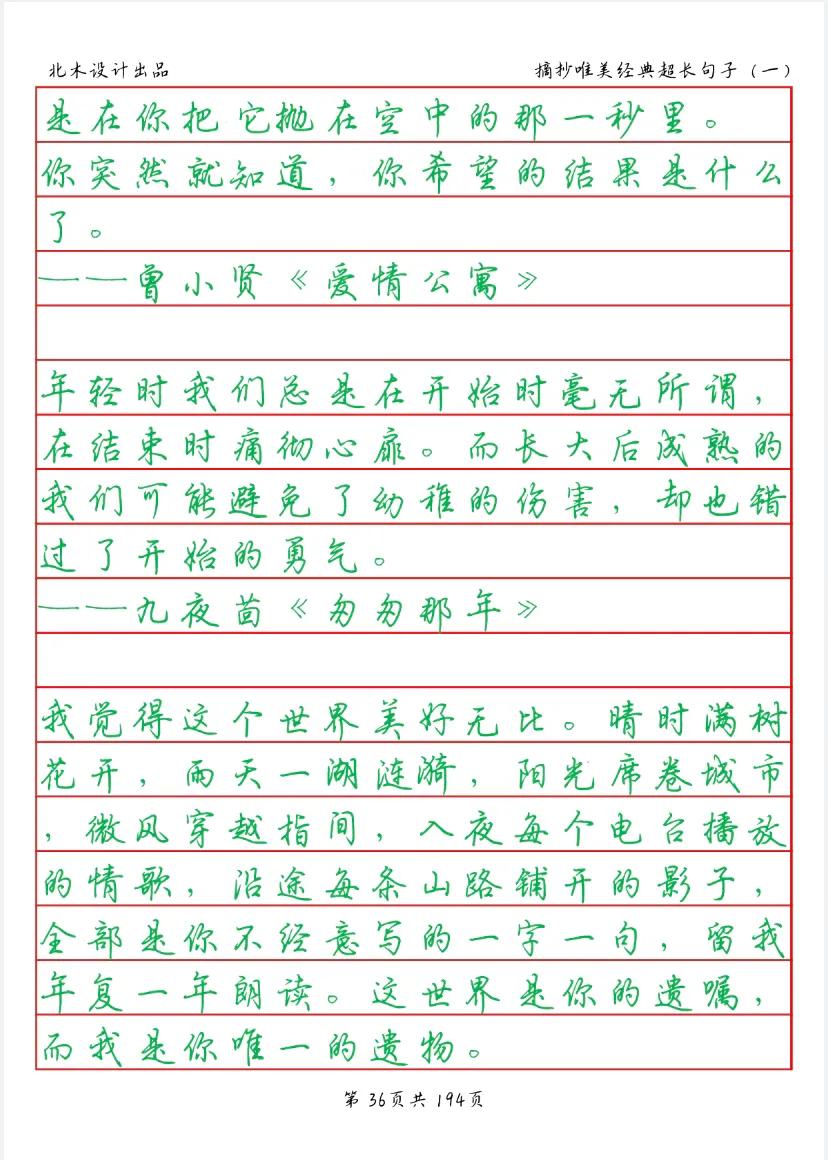 北木设计出品
摘抄唯美经典超长句子（一）
是在你把它抛在空中的那一秒里。
你突然就知道，你希望的结果是什么
了。
——曾小贤《爱情公寓》
年轻时我们总是在开始时毫无所谓，
在结束时痛彻心扉。而长大后成熟的
我们可能避免了幼稚的伤害，却也错
过了开始的勇气。
——九夜茴《匆匆那年》
我觉得这个世界美好无比。晴时满树
花开，雨天一湖涟漪，阳光席卷城市
，微风穿越指间，入夜每个电台播放
的情歌，沿途每条山路铺开的影子，
全部是你不经意写的一字一句，留我
年复一年朗读。这世界是你的遗嘱，
而我是你唯一的遗物。
第 36页共 194页